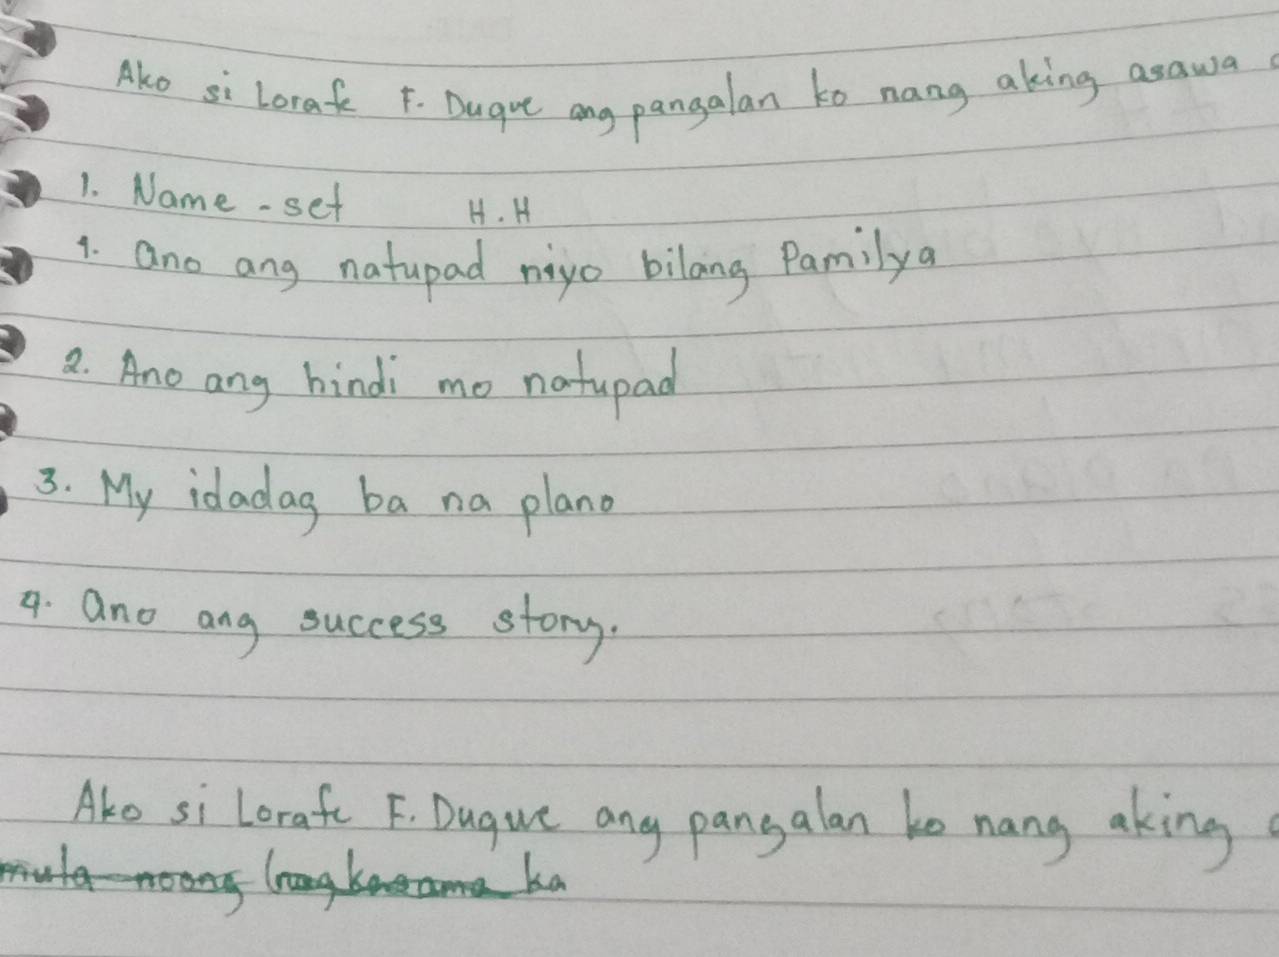 Ako si Lorafe F. Duque ang pangalan ko nang aking asawa
1. Name - set H.H
1. Ano ang natupad niyo bilang Pamilya
2. Ano ang hindi mo natupad
3. My idadag ba na plano
4. Ano ang success story.
Ako si Lorafe F. Duque ang pangalan ko nang aking
mula noong ka